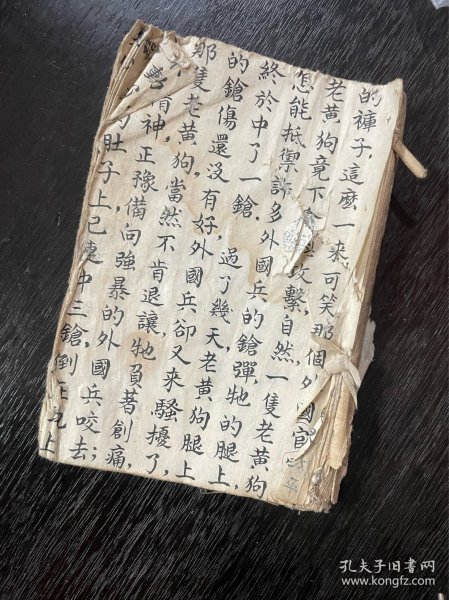 的褲子,這麼一來,可笑那個外國官
老黃狗竟下攻擊,自然一隻老黃狗
怎能抵禦許多外國兵的鎗彈,牠的腿上,
終於中了一鎗.過了幾天老黃狗腿上
的鎗傷還沒有好,外國兵卻又來騷擾了,
那隻老黃狗,當然不肯退讓,牠負著創痛,
有神,正豫備向強暴的外國兵咬去;
肚子上已連中三鎗,倒在地上
孔夫子旧书网
www.kongfz.com